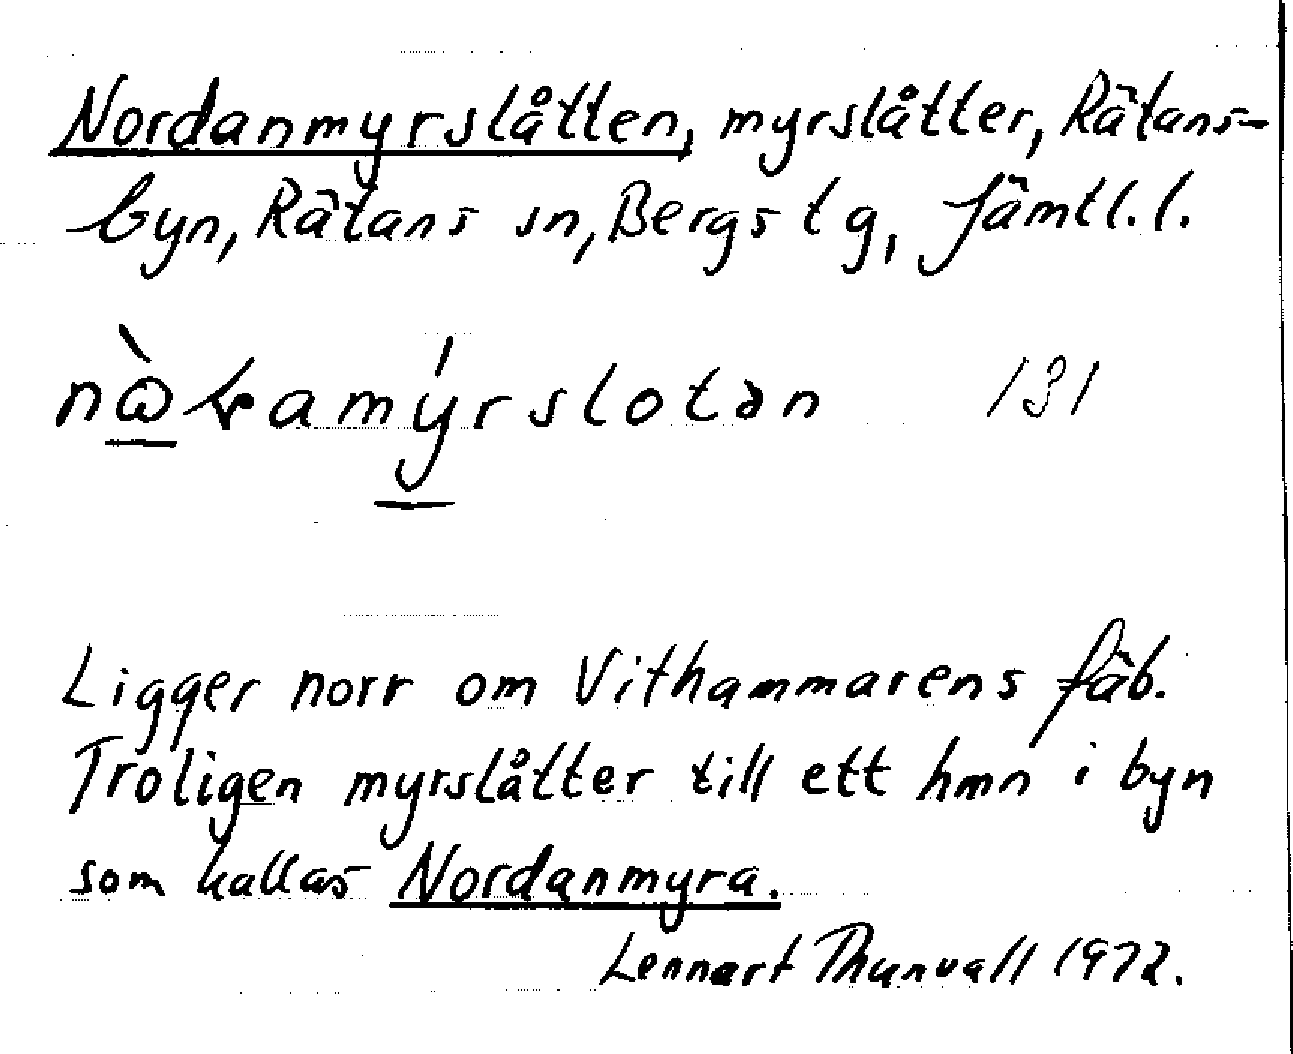 Nordanmyrslåtten, myrslåtter, Rätans-
byn, Rätans sn, Bergs tg, Jämtl. l.
131
Ligger norr om Vithammarens fäb.
Troligen myrslåtter till ett hmn i byn
som kallas Nordanmyra.
Lennart Thunvall 1972.